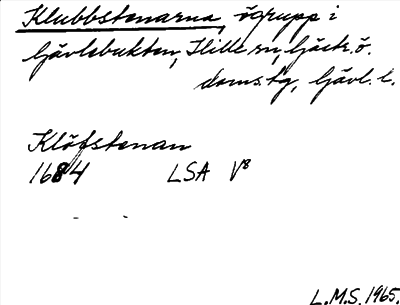 Klubbstenarna, ögrupp i
Gävlebukten, Hille sn, Gästr. ö.
doms.tg, Gävl. l.
Klöfstenan
1684 LSA V⁸
L.M.S. 1965.